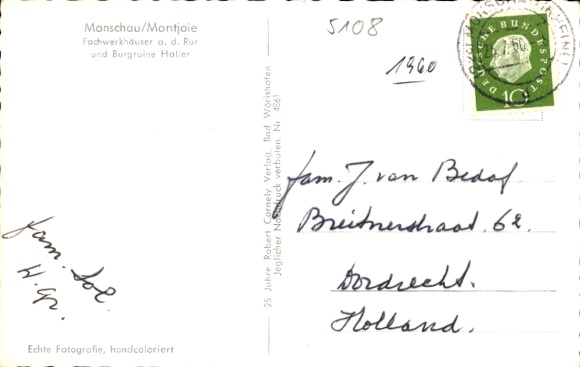 Monschau/Montjoie
Fachwerkhäuser a. d. Rur
und Burgruine Haller
5108
1960
DEUTSCHE BUNDESPOST
10
25 Jahre Robert Cornely Verlag, Bad Wörishofen
Jeglicher Nachdruck verboten. Nr. 4861
Fam. J. van Bedaf
Breitnerstraat 62.
Dordrecht.
Holland.
Fam. Sol.
H. Gr.
Echte Fotografie, handcoloriert